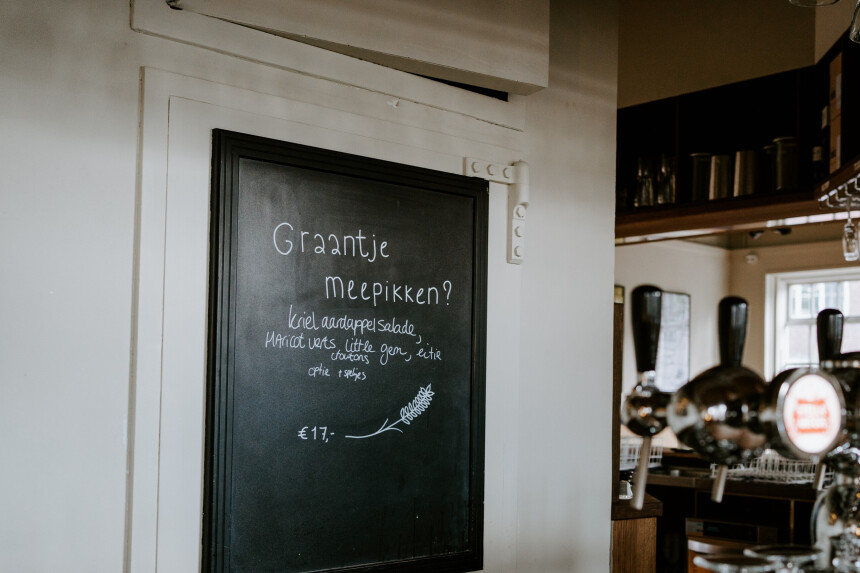 Graantje
meepikken?
kriel aardappel salade,
Haricot verts, little gem, eitje
croutons
optie + spekjes
€17,-